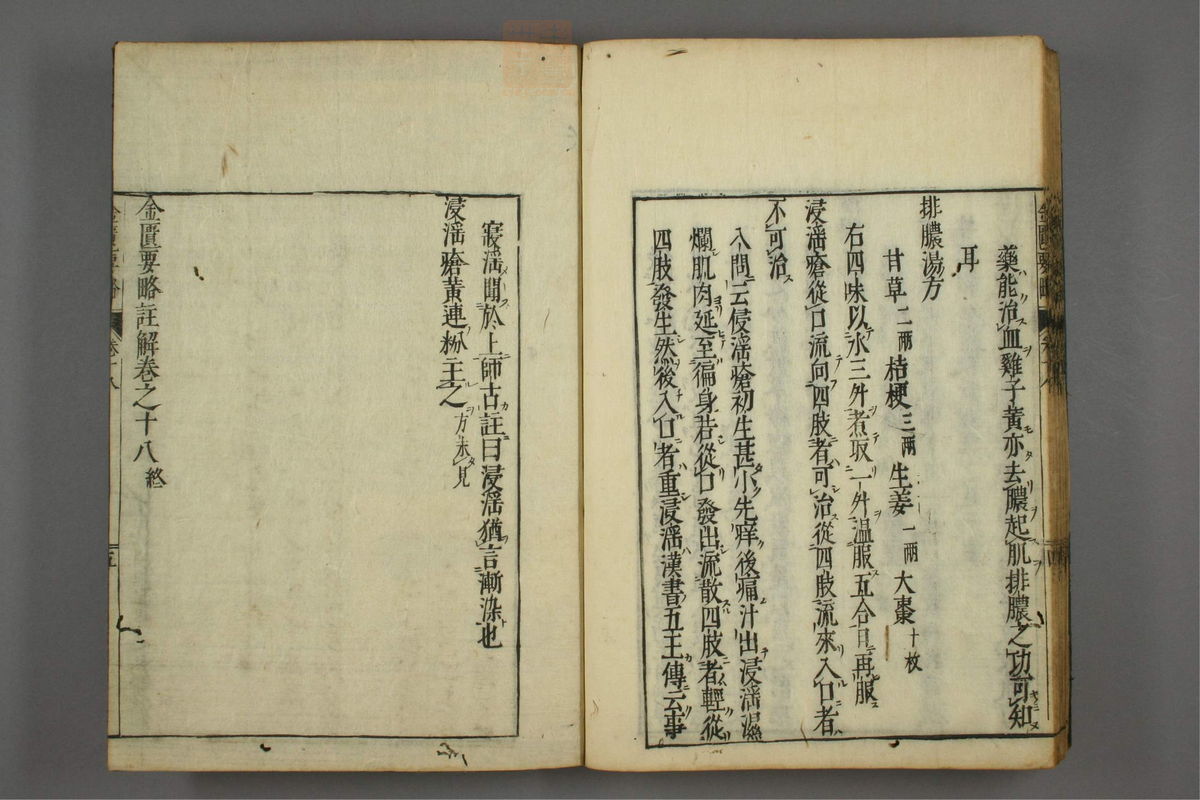 藥能治血雞子黃亦去膿起肌排膿之功可知
耳
排膿湯方
甘草二兩桔梗三兩生姜一兩大棗十枚
右四味以水三升煮取一升温服五合日再服
浸淫瘡從口流向四肢者可治從四肢流來入口者
不可治
入問云侵淫瘡初生甚小先痒後痛汁出浸淫濕
爛肌肉延至徧身若從口發出流散四肢者輕從
四肢發生然後入口者重浸淫漢書五王傳云事
寖淫聞於上師古註曰浸淫猶言漸染也
浸淫瘡黃連粉主之方未見
金匱要略註解卷之十八終